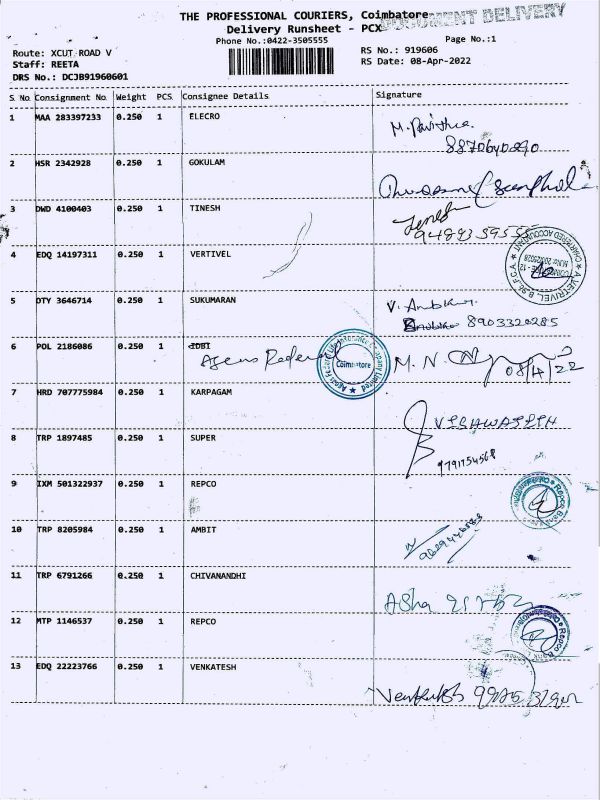 THE PROFESSIONAL COURIERS, Coimbatore
DOCUMENT DELIVERY
Delivery Runsheet - PCX
Phone No.:0422-3505555
Page No.:1
Route: XCUT ROAD V
RS No.: 919606
Staff: REETA
RS Date: 08-Apr-2022
DRS No.: DC3B91960601
S No Consignment No Weight PCS Consignee Details Signature
1 MAA 283397233 0.250 1 ELECRO
M. Pavithra
8870640890
2 HSR 2342928 0.250 1 GOKULAM
3 DWD 4100403 0.250 1 TINESH
9489359555
4 EDQ 14197311 0.250 1 VERTIVEL
5 DTY 3646714 0.250 1 SUKUMARAN
V. Anbku
8903320285
6 POL 2186086 0.250 1 IDBI
Ageas Federal
Coimbatore
M. N.
08/4/22
7 HRD 707775984 0.250 1 KARPAGAM
VISHWAJITH
8 TRP 1897485 0.250 1 SUPER
9791754568
9 IXM 501322937 0.250 1 REPCO
10 TRP 8205984 0.250 1 AMBIT
11 TRP 6791266 0.250 1 CHIVANANDHI
Asha
12 MTP 1146537 0.250 1 REPCO
13 EDQ 22223766 0.250 1 VENKATESH
Venkatesh